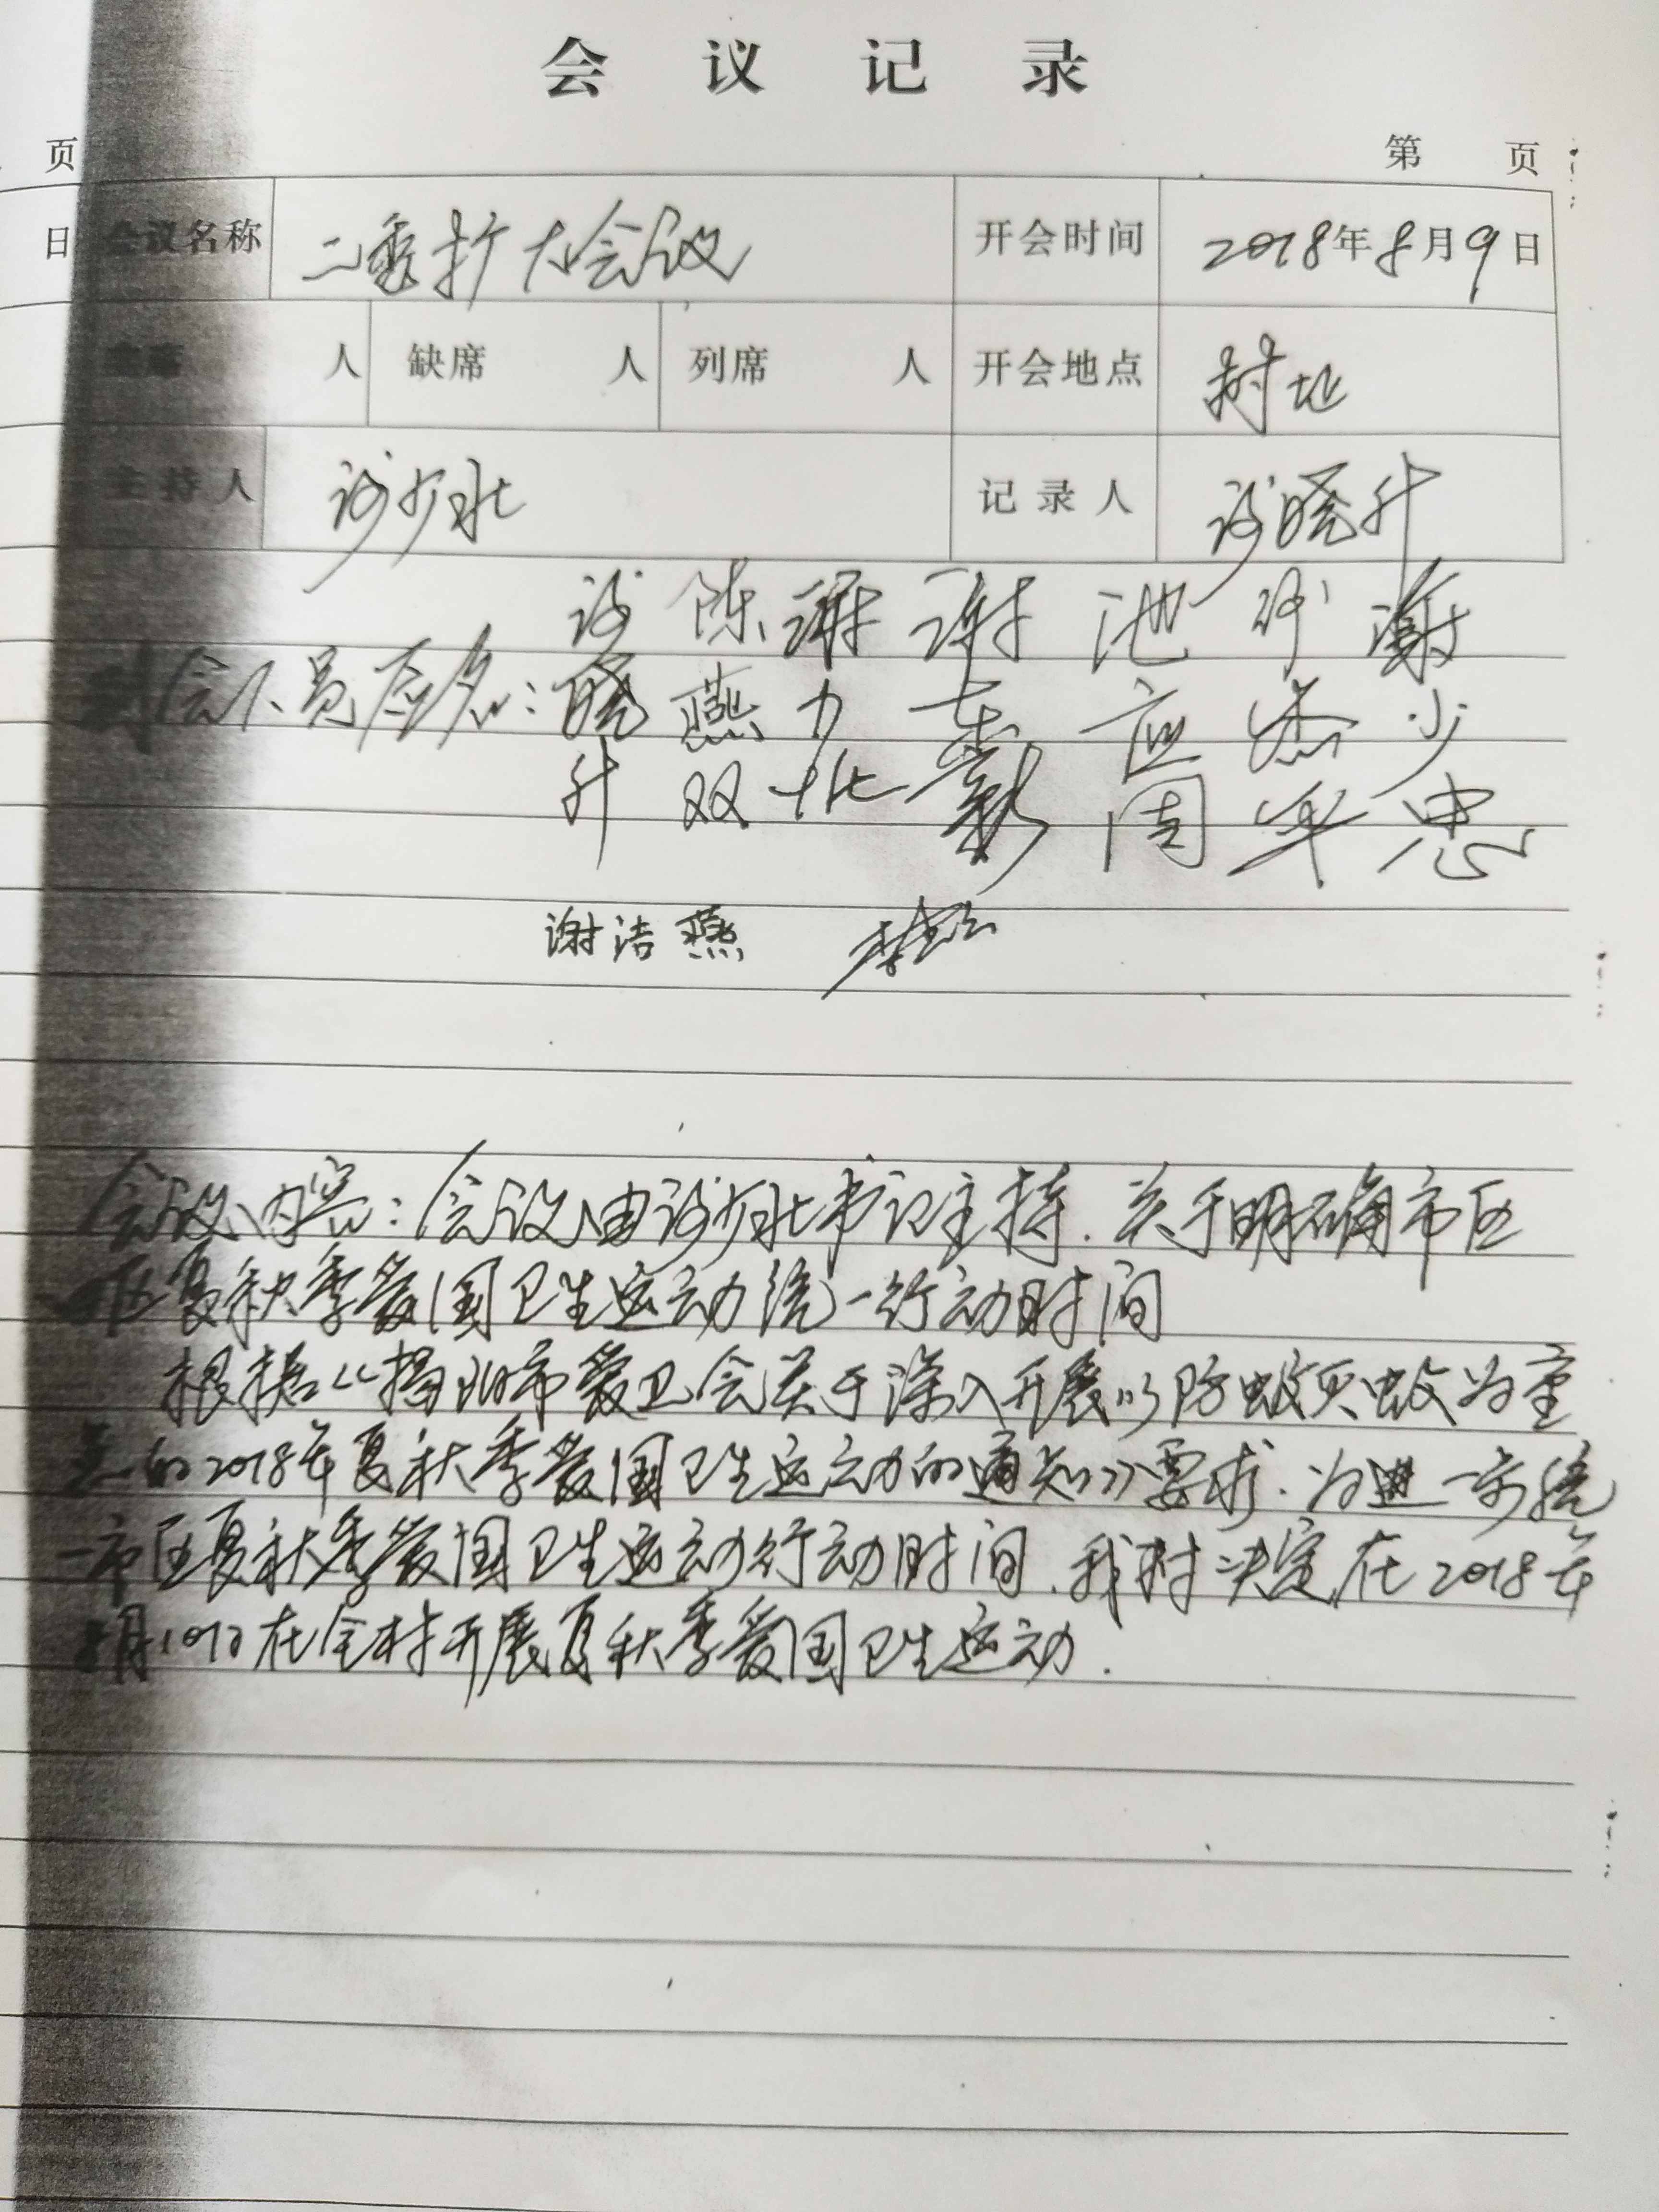 会议记录
页 第 页
日 会议名称 二委扩大会议 开会时间 2018年8月9日
人 缺席 人 列席 人 开会地点 村址
主持人 谢少北 记录人 谢晓升
到会人员应名:
谢晓升 陈燕双 谢力北 池应周 谢少忠
谢洁燕
会议内容:会议由谢少北书记主持.关于明确市区
夏秋季爱国卫生运动统一行动时间
根据《揭阳市爱卫会关于深入开展以防蚊灭蚊为重
点的2018年夏秋季爱国卫生运动的通知》要求.为进一步统
一市区夏秋季爱国卫生运动行动时间.我村决定在2018年
8月10日在全村开展夏秋季爱国卫生运动.